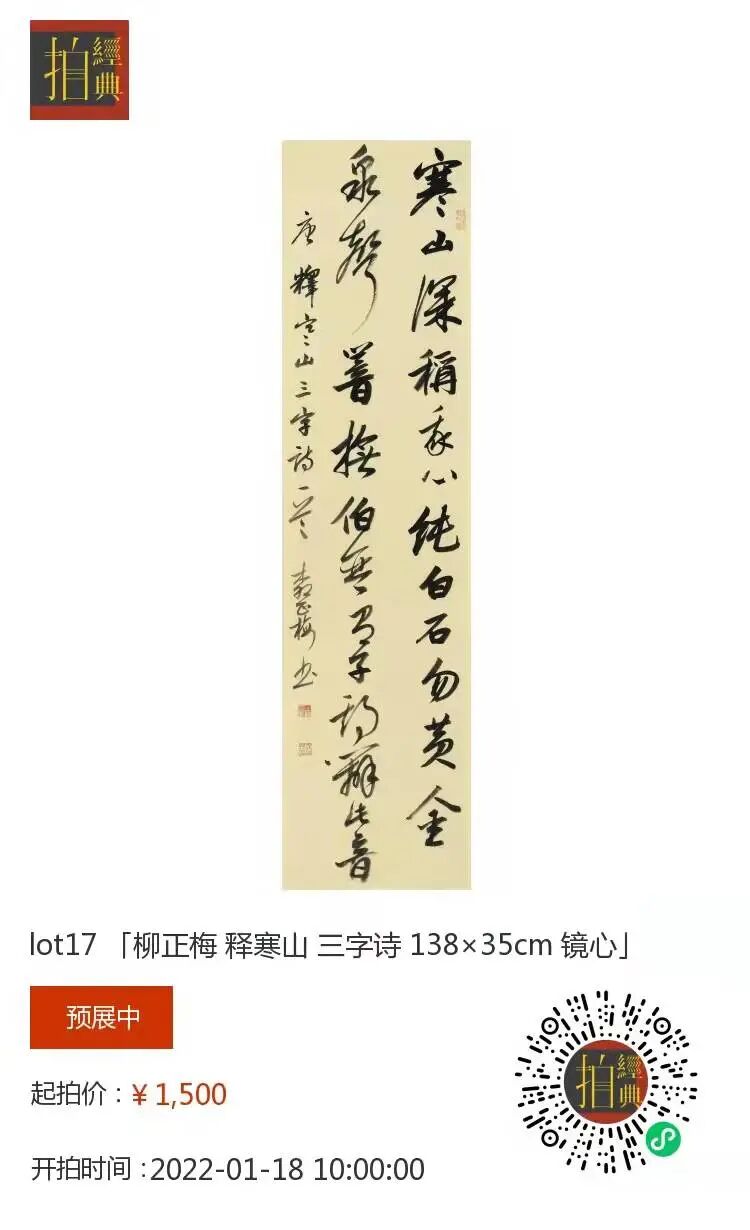 拍經典
寒山深稱我心純白石勿黃金
泉聲響撫伯琴有子期辨此音
唐 釋寒山三字詩一首 柳正梅書
lot17 「柳正梅 释寒山 三字诗 138×35cm 镜心」
预展中
起拍价:¥1,500
开拍时间:2022-01-18 10:00:00
拍經典